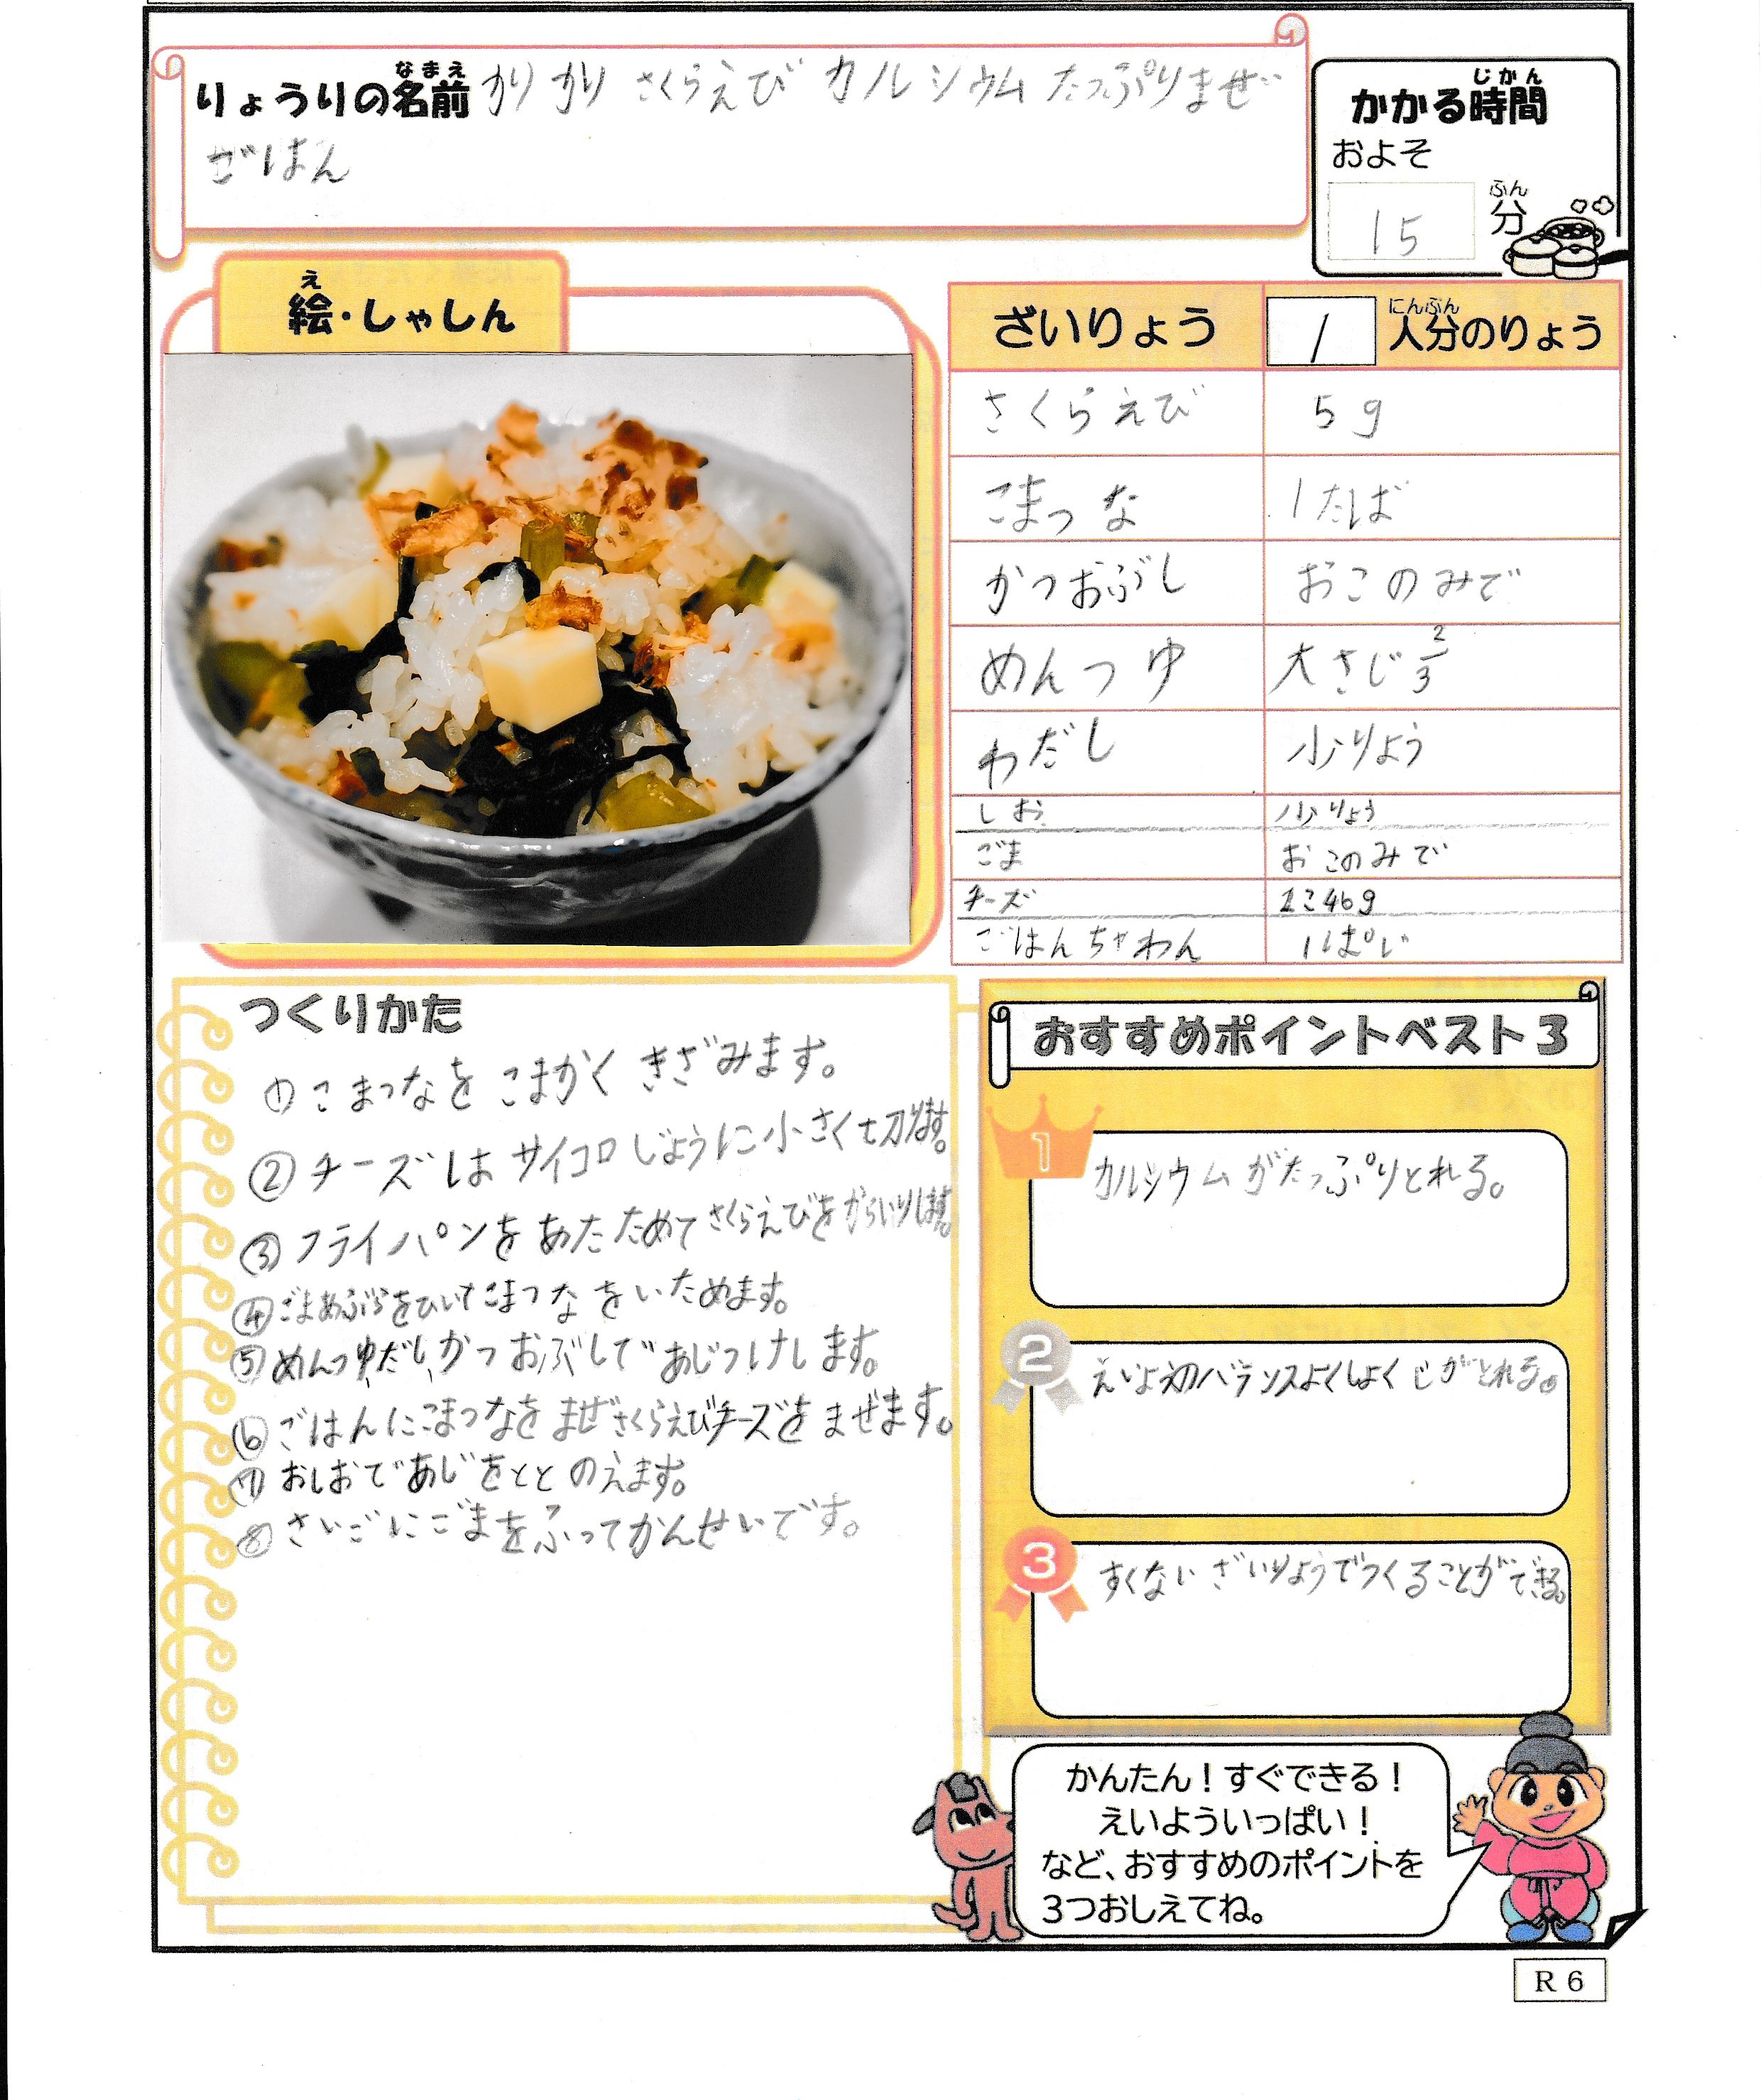 りょうりの名前 かりかりさくらえびカルシウムたっぷりまぜ
ごはん
なまえ
かかる時間
じかん
およそ
15 分
ふん
絵・しゃしん
え
ざいりょう 1 人分のりょう
にんぶん
さくらえび 5g
こまつな 1たば
かつおぶし おこのみで
めんつゆ 大さじ2/3
わだし 小りょう
しお 小りょう
ごま おこのみで
チーズ
ごはんちゃわん
つくりかた
①こまつなをこまかくきざみます。
②チーズはサイコロじょうに小さく切ります。
③フライパンをあたためてさくらえびをからいりします。
④ごまあぶらをひいてこまつなをいためます。
⑤めんつゆ、だし、かつおぶしであじつけします。
⑥ごはんにこまつなをまぜさくらえびチーズをまぜます。
⑦おしおであじをととのえます。
⑧さいごにごまをふってかんせいです。
おすすめポイントベスト3
1
カルシウムがたっぷりとれる。
2
えいようのバランスよくしょくじがとれる。
3
すくないざいりょうでつくることができる。
かんたん！すぐできる！
えいよういっぱい！
など、おすすめのポイントを
3つおしえてね。
R6